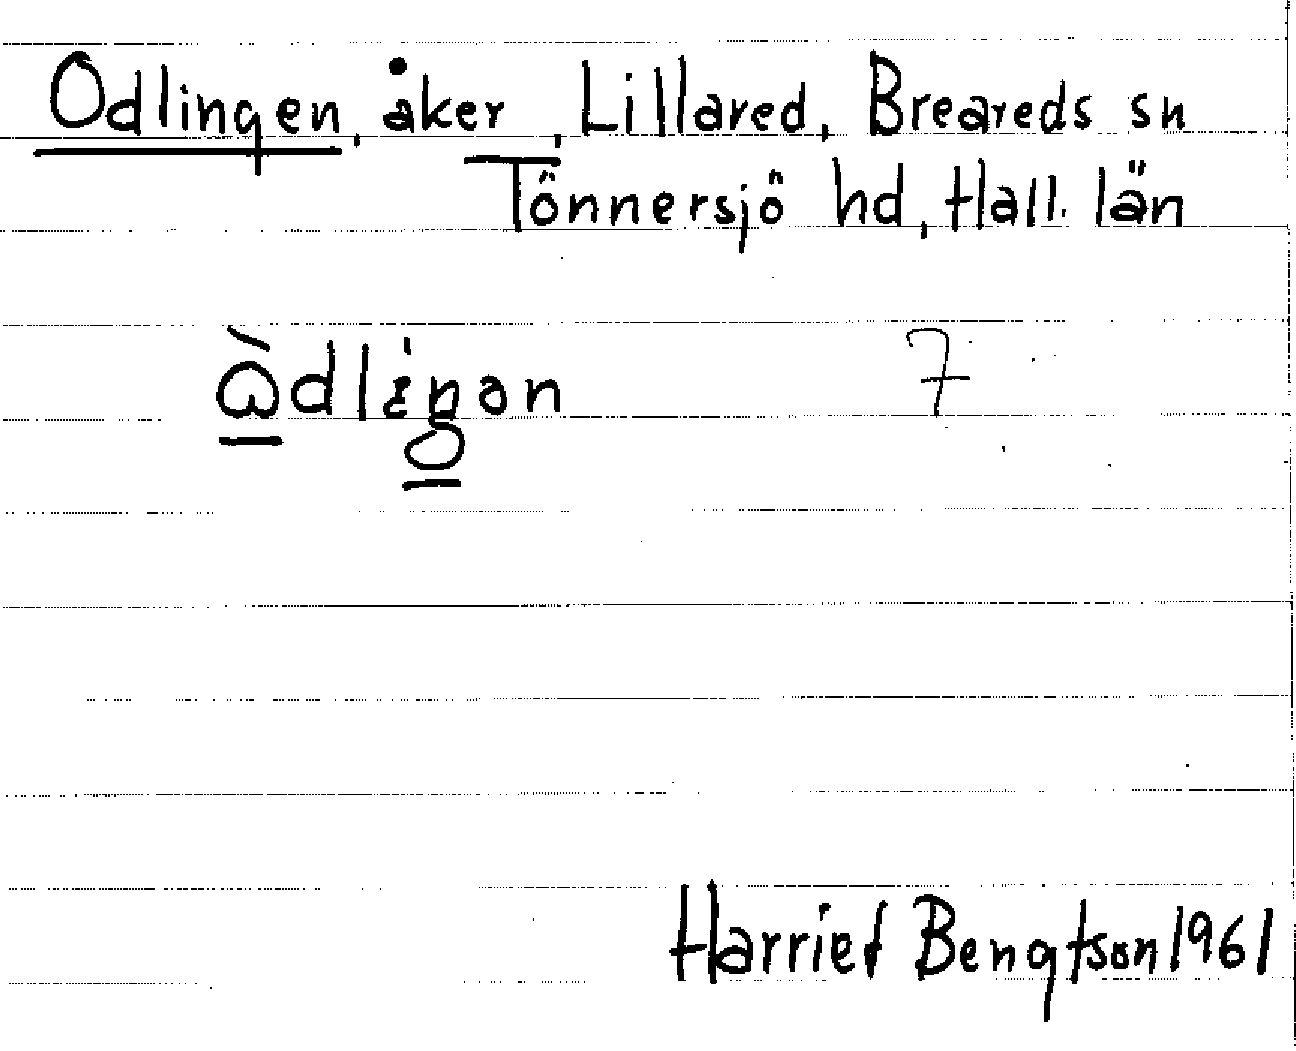 Odlingen, åker, Lillared, Breareds sn
Tönnersjö hd, Hall. län
7
Harriet Bengtson 1961